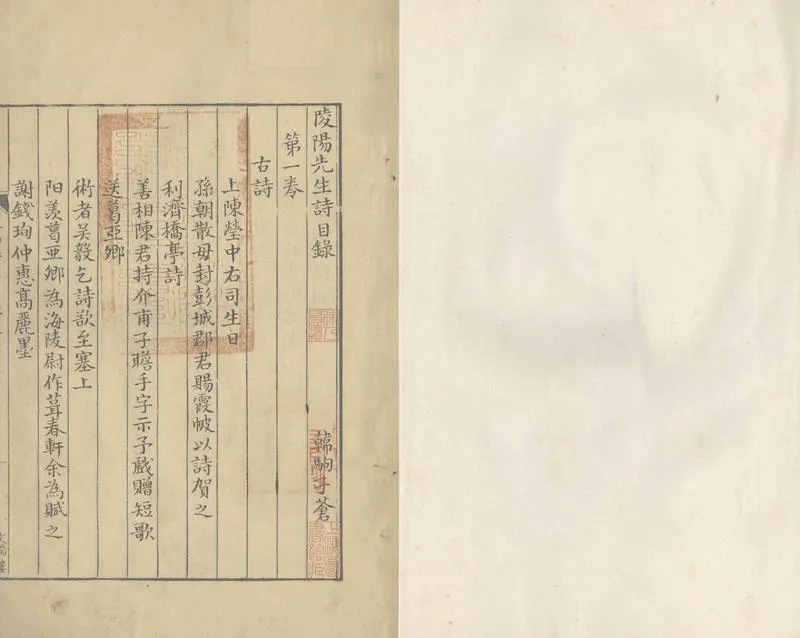 陵陽先生詩目錄
韓駒子蒼
第一卷
古詩
上陳瑩中右司生日
孫朝散母封彭城郡君賜霞帔以詩賀之
利濟橋亭詩
善相陳君持介甫子瞻手字示予戲贈短歌
送葛亞卿
術者吴毅乞詩欲至塞上
陽羨葛亞卿為海陵尉作葺春軒余為賦之
謝錢珣仲惠髙麗墨